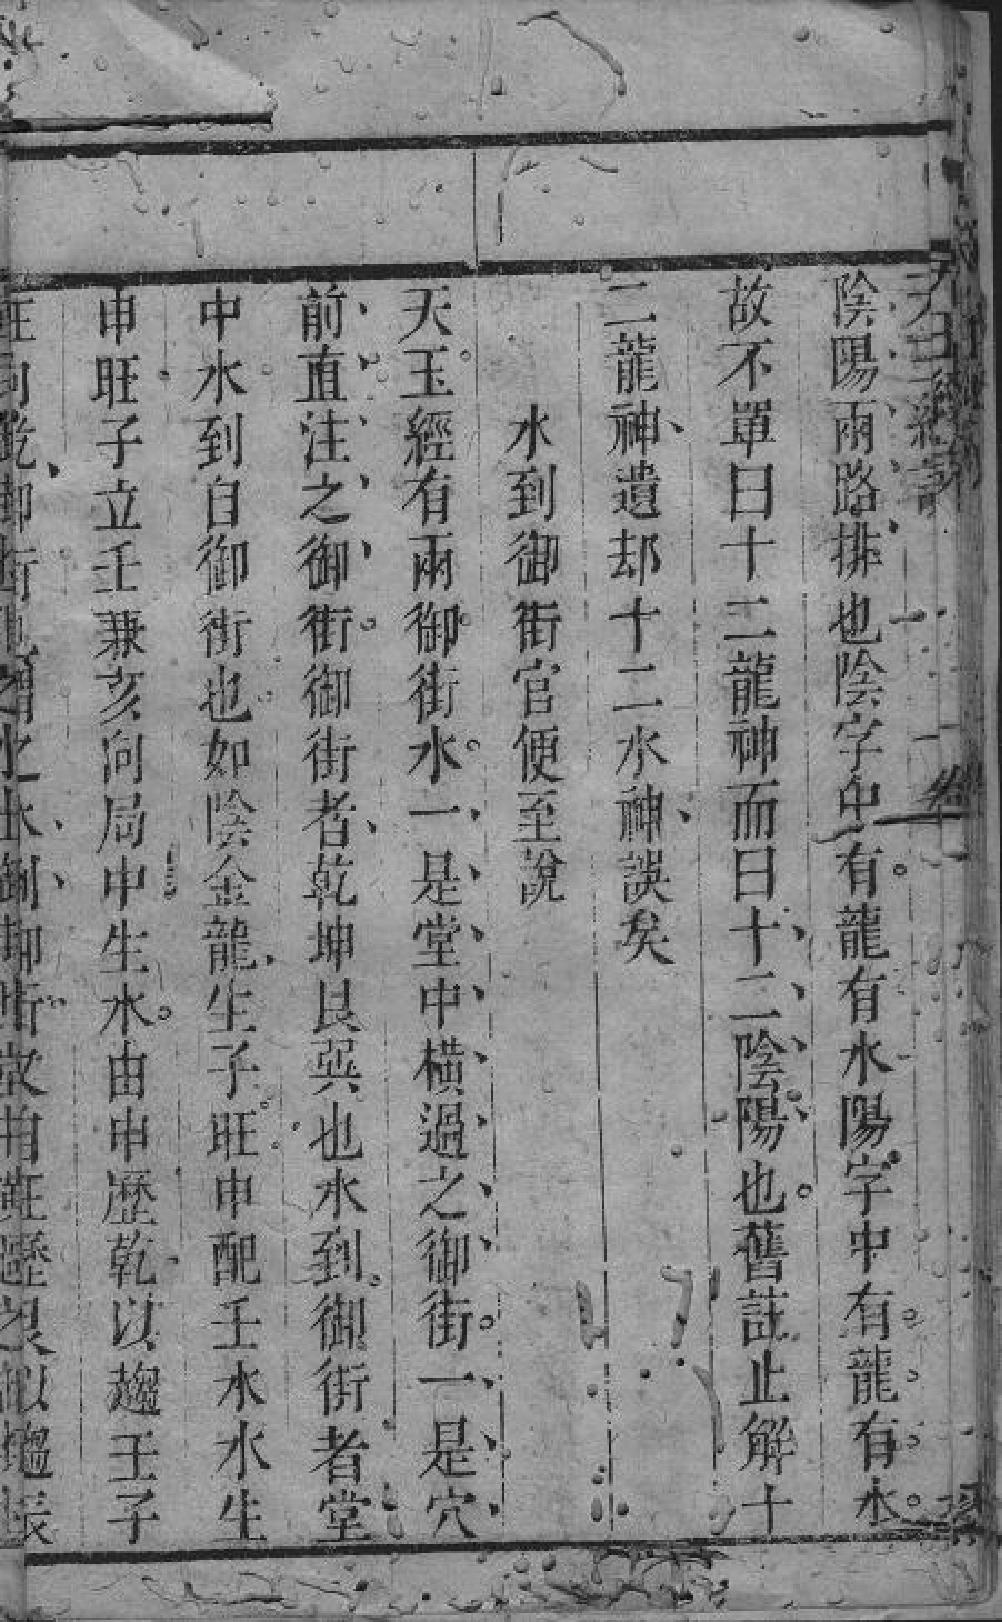 陰陽兩路排也陰字中有龍有水陽字中有龍有水
故不單曰十二龍神而曰十二陰陽也舊註止解十
二龍神遺却十二水神誤矣
水到御街官便至說
天玉經有兩御街水一是堂中橫過之御街一是穴
前直注之御街御街者乾坤艮巽也水到御街者堂
中水到自御街也如陰金龍生子旺申配壬水水生
申旺子立壬兼亥向局中生水由申歷乾以趨壬子